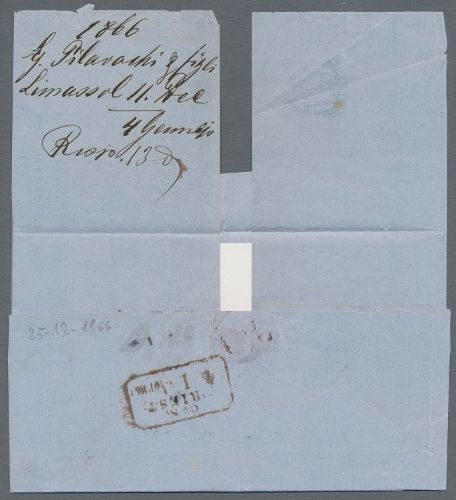 1866
G. Pilavachi & figli
Limassol 11. Dec
4 Gennajo
Risp. 13 d
25-12-1866